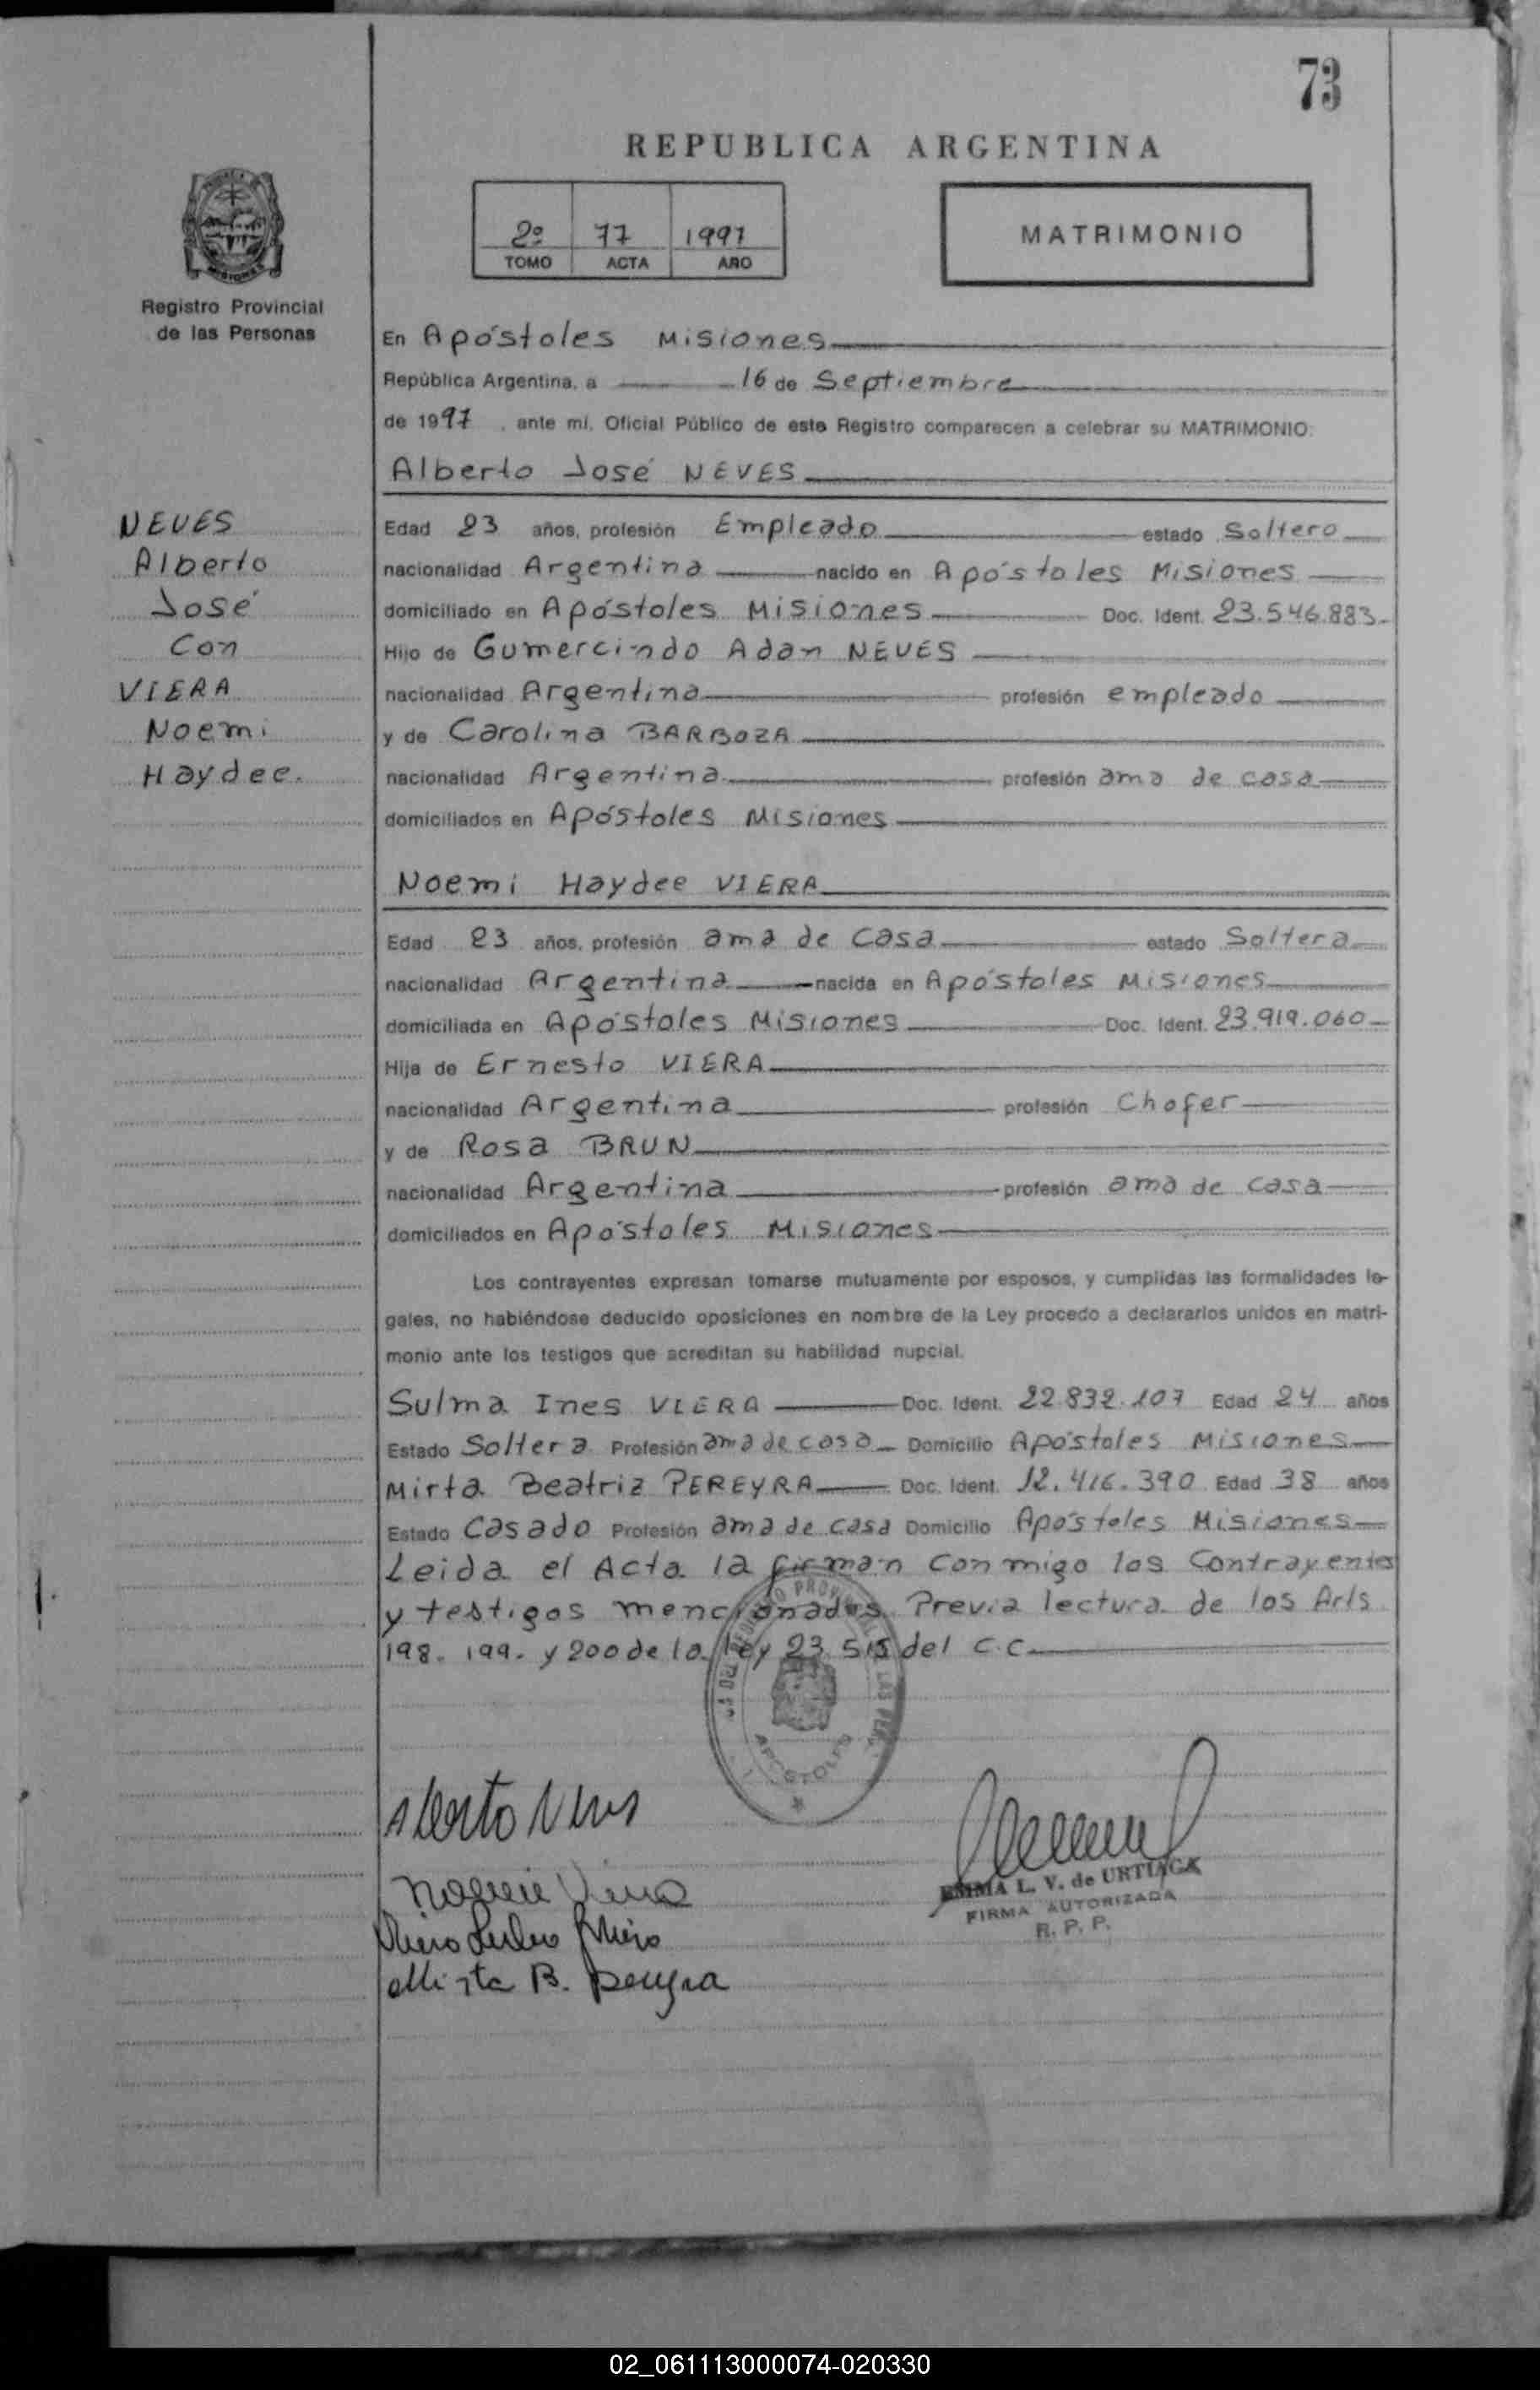 73
REPUBLICA ARGENTINA
2º 77 1997
TOMO ACTA AÑO
MATRIMONIO
Registro Provincial
de las Personas
En Apóstoles Misiones
República Argentina, a 16 de Septiembre
de 1997, ante mí, Oficial Público de este Registro comparecen a celebrar su MATRIMONIO:
Alberto José NEVES
NEVES
Alberto
José
Con
VIERA
Noemi
Haydee.
Edad 23 años, profesión Empleado estado Soltero
nacionalidad Argentina nacido en Apóstoles Misiones
domiciliado en Apóstoles Misiones Doc. Ident. 23.546.883.
Hijo de Gumercindo Adan NEVES
nacionalidad Argentina profesión empleado
y de Carolina BARBOZA
nacionalidad Argentina profesión ama de casa
domiciliados en Apóstoles Misiones
Noemi Haydee VIERA
Edad 23 años, profesión ama de Casa estado Soltera
nacionalidad Argentina nacida en Apóstoles Misiones
domiciliada en Apóstoles Misiones Doc. Ident. 23.919.060
Hija de Ernesto VIERA
nacionalidad Argentina profesión Chofer
y de Rosa BRUN
nacionalidad Argentina profesión ama de casa
domiciliados en Apóstoles Misiones
Los contrayentes expresan tomarse mutuamente por esposos, y cumplidas las formalidades le-
gales, no habiéndose deducido oposiciones en nombre de la Ley procedo a declararlos unidos en matri-
monio ante los testigos que acreditan su habilidad nupcial.
Sulma Ines VIERA Doc. Ident. 22.832.107 Edad 24 años
Estado Soltera Profesión ama de casa Domicilio Apóstoles Misiones
Mirta Beatriz PEREYRA Doc. Ident. 12.416.390 Edad 38 años
Estado Casado Profesión ama de casa Domicilio Apóstoles Misiones
Leida el Acta la firman Conmigo los Contrayentes
y testigos mencionados. Previa lectura de los Arts
198. 199. y 200 de la ley 23.515 del C.C.
APOSTOLES
Alberto Neves
Noemi Viera
EMMA L. V. de URTIAGA
FIRMA AUTORIZADA
R. P. P.
Mirta B. Pereyra
02_061113000074-020330